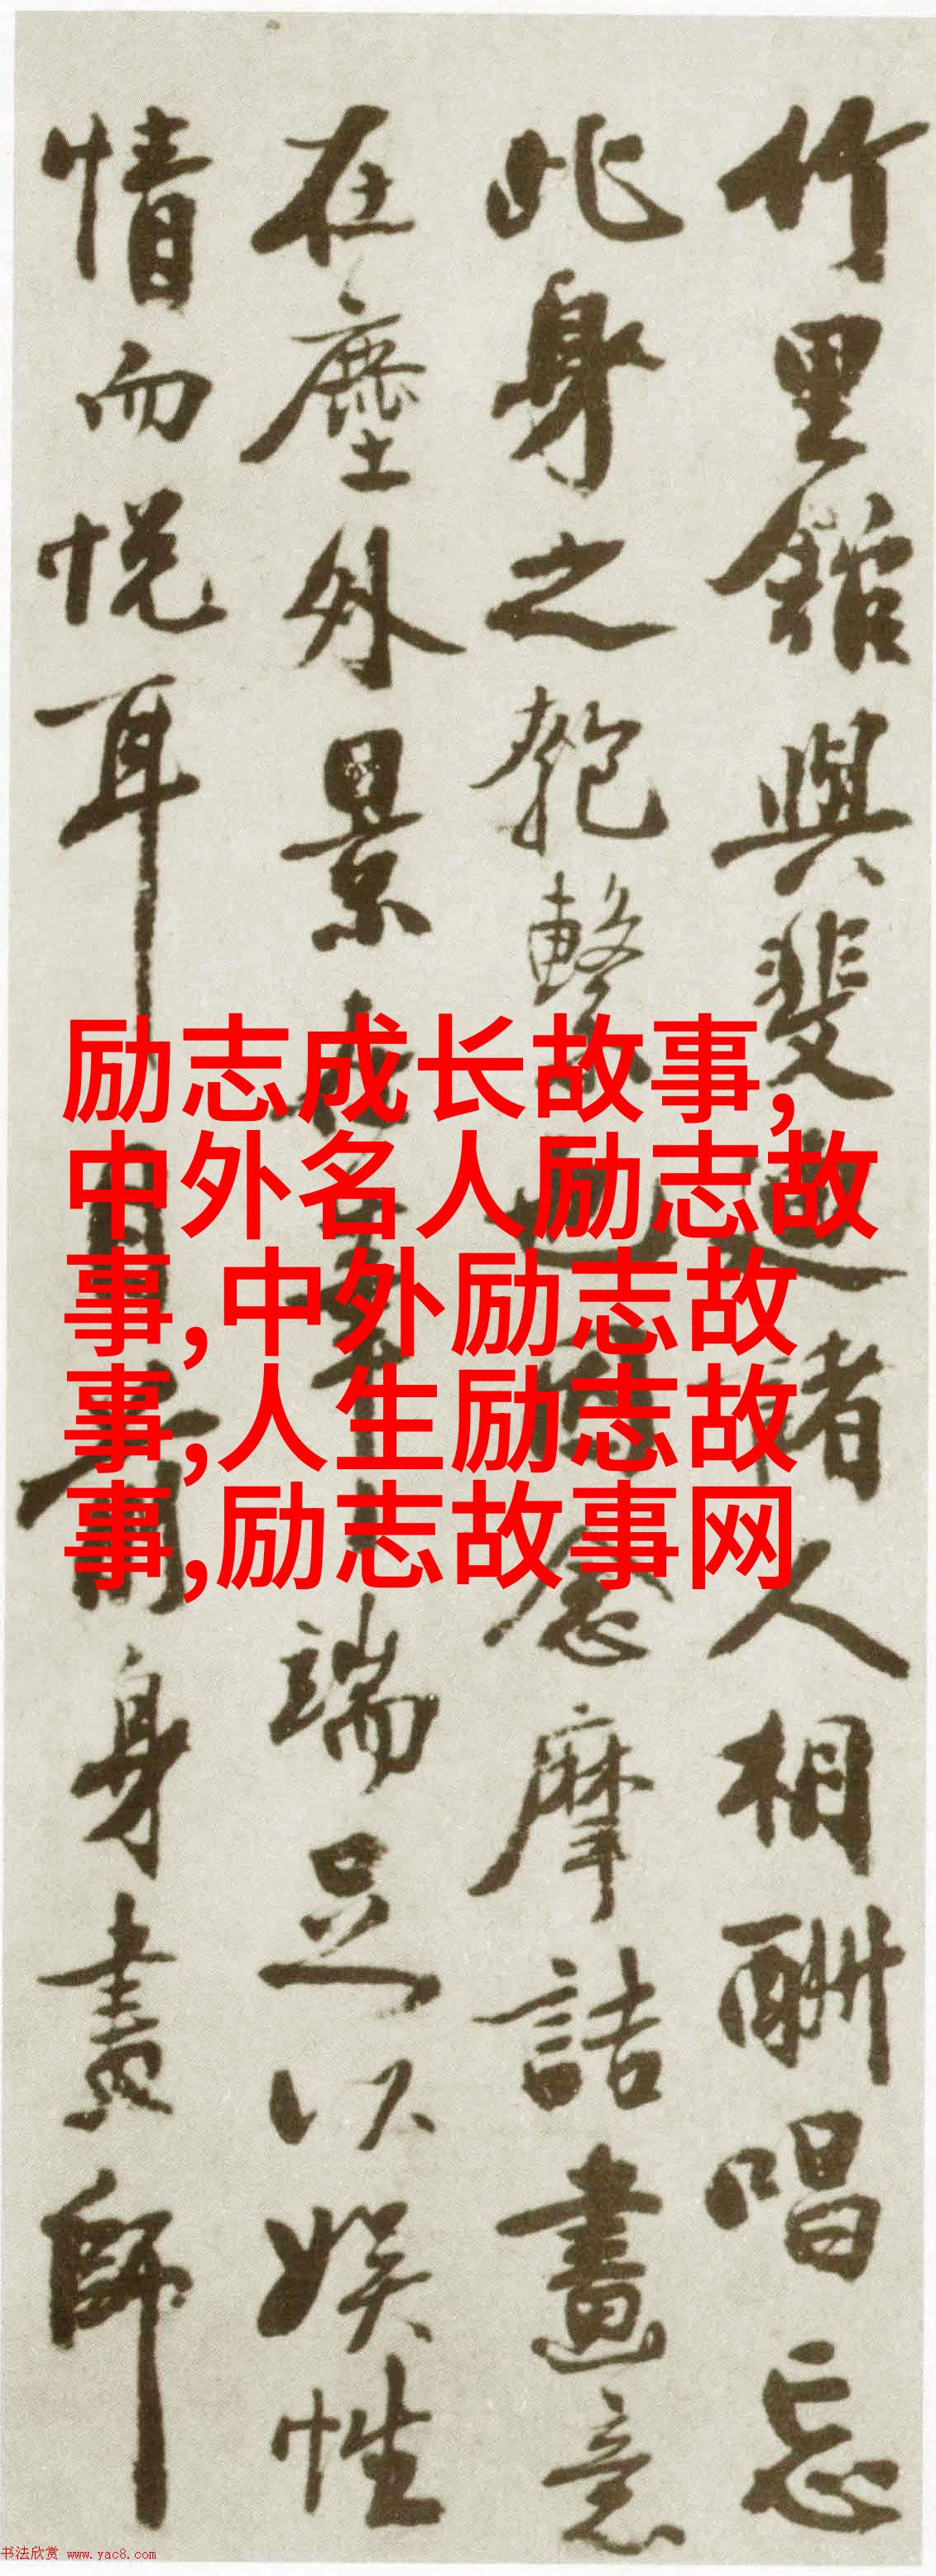 竹里館與斐迪諸人相酬唱忘
此身之匏繫也因念摩詰畫意
在塵外景在筆端足以娛性
情而悅耳目前身畫師
励志成长故事,
中外名人励志故
事,中外励志故
事,人生励志故
事,励志故事网
书法欣赏 www.yac8.com